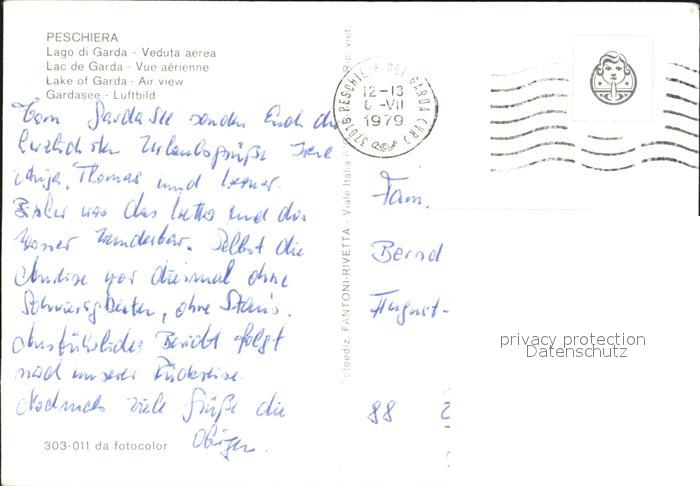 PESCHIERA
Lago di Garda - Veduta aerea
Lac de Garda - Vue aérienne
Lake of Garda - Air view
Gardasee - Luftbild
Vom Gardasee senden Euch die
herzlichsten Urlaubsgrüße Irene
Thomas und
Bisher war das Wetter und das
Wasser wunderbar. Selbst die
Anreise war diesmal ohne
Schwierigkeiten, ohne Staus.
Ausführlicher Bericht folgt
nach unserer Rückreise.
Nochmals viele Grüße die
Obigen.
303-011 da fotocolor
Fotoediz. FANTONI-RIVETTA - Viale Italia
Rip. viet.
37016 PESCHIERA DEL GARDA (VR)
12-13
6-VII
1979
Fam.
Bernd
August-
88
privacy protection
Datenschutz